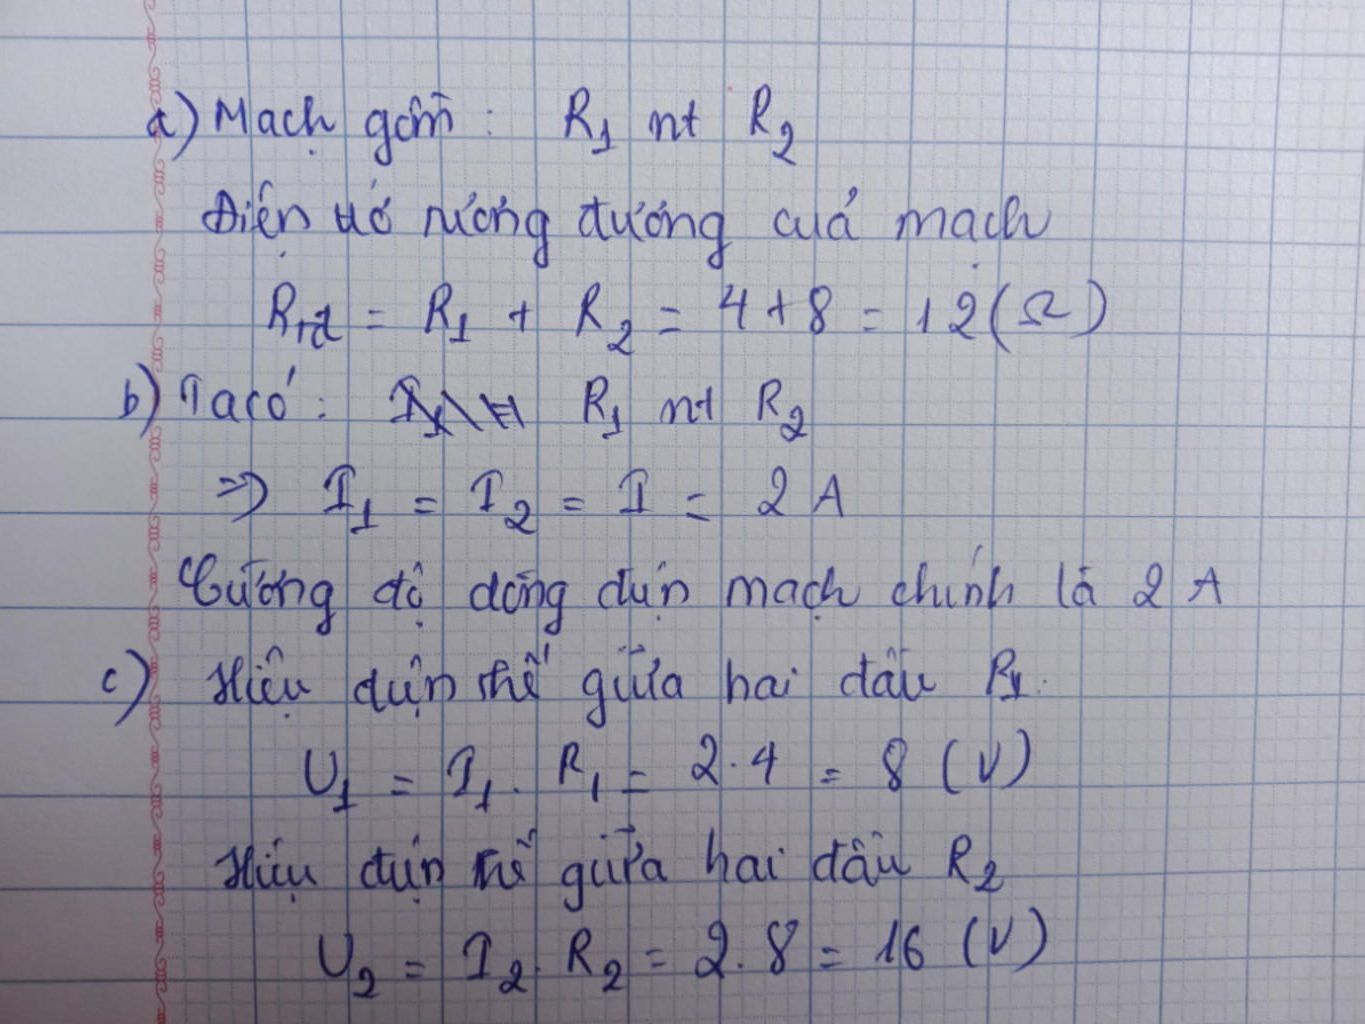 a) Mạch gồm : R1 nt R2
Điện trở tương đương của mạch
Rtđ = R1 + R2 = 4 + 8 = 12 (Ω)
b) Ta có : R1 nt R2
=> I1 = I2 = I = 2 A
Cường độ dòng điện mạch chính là 2 A
c) Hiệu điện thế giữa hai đầu R1.
U1 = I1 . R1 = 2.4 = 8 (V)
Hiệu điện thế giữa hai đầu R2
U2 = I2 . R2 = 2.8 = 16 (V)